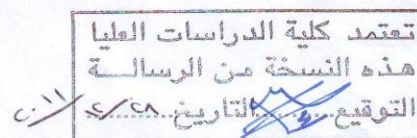 تعتمد كلية الدراسات العليا
هذه النسخة من الرسالــة
التوقيع............التاريخ ٢٨/٢/٢٠١١